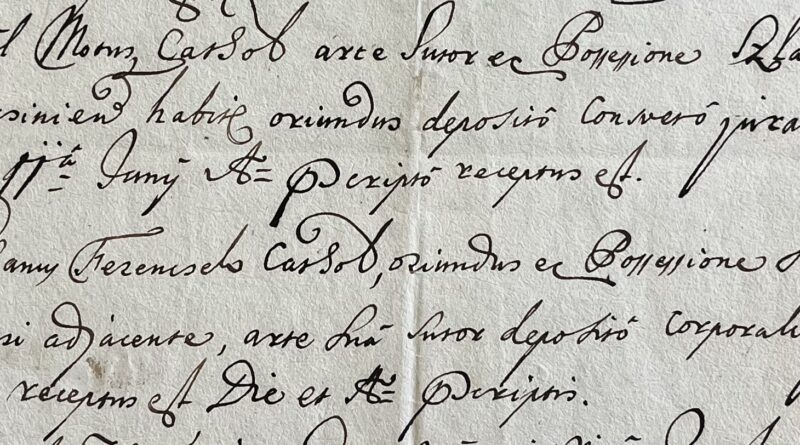 Motus, Cathol arte Sutor ex Possessione Szla
habit oriundus depositô Consvetô jura
11ª Junij Aº Pscriptô receptus est.
Ferencsek Cathol, oriundus ex Possessione
si adjacente, arte suâ sutor depositô Corporali
receptus est Die et Aº Pscriptis.